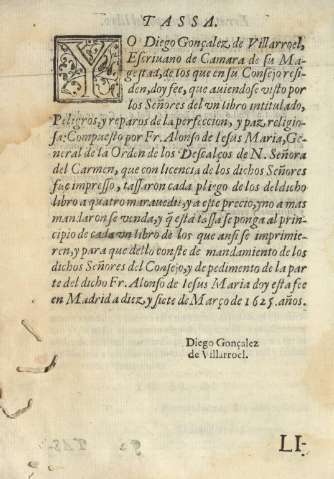 TASSA.
YO Diego Gonçalez, de Villarroel,
Escriuano de Camara de su Ma-
gestad, de los que en su Consejo resi-
den, doy fee, que auiendose visto por
los Señores del vn libro intitulado,
Peligros, y reparos de la perfeccion, y paz, religio-
sa: Compuesto por Fr. Alonso de Iesus Maria, Ge-
neral de la Orden de los Descalços de N. Señora
del Carmen, que con licencia de los dichos Señores
fue impresso, tassaron cada pliego de los del dicho
libro a quatro marauedis, y a este precio, y no a mas
mandaron se venda, y q̃ esta tassa se ponga al prin-
cipio de cada vn libro de los que ansi se imprimie-
ren, y para que dello conste de mandamiento de los
dichos Señores del Consejo, y de pedimento de la par
te del dicho Fr. Alonso de Iesus Maria doy esta fee
en Madrid a diez, y siete de Março de 1625. años.
Diego Gonçalez
de Villarroel.
LI-